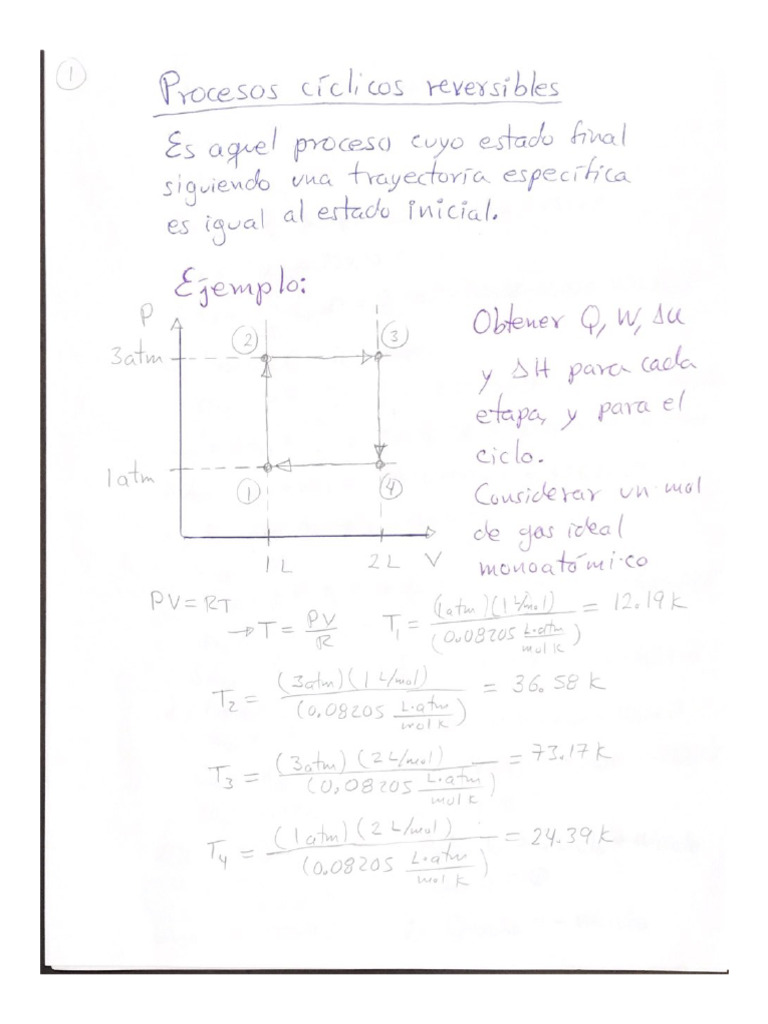 1
Procesos cíclicos reversibles
Es aquel proceso cuyo estado final
siguiendo una trayectoria específica
es igual al estado inicial.
Ejemplo:
P
3atm
1atm
2
3
1
4
1 L
2 L
V
Obtener Q, W, Δu
y ΔH para cada
etapa, y para el
ciclo.
Considerar un mol
de gas ideal
monoatómico
PV=RT
→T = PV/R
T1 = (1atm)(1 L/mol)/(0.08205 L·atm/mol K) = 12.19 K
T2 = (3atm)(1 L/mol)/(0.08205 L·atm/mol K) = 36.58 K
T3 = (3atm)(2 L/mol)/(0.08205 L·atm/mol K) = 73.17 K
T4 = (1atm)(2 L/mol)/(0.08205 L·atm/mol K) = 24.39 K